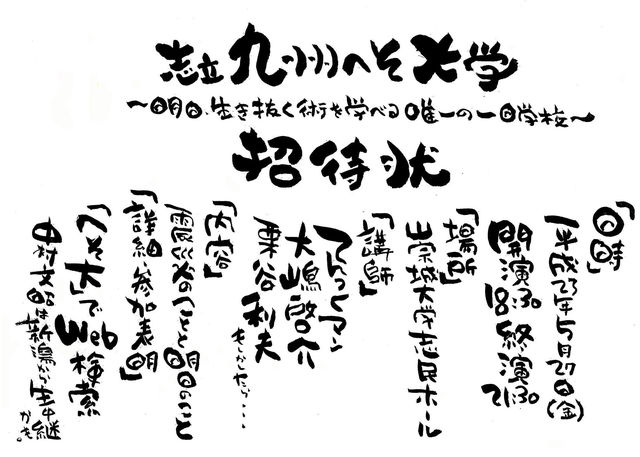 志立九州へそ大学
〜明日、生き抜く術を学べる唯一の一日学校〜
招待状
「日時」
平成23年5月27日(金)
開演18:30終演21:30
「場所」
崇城大学志民ホール
「講師」
てんつくマン
大嶋啓介
栗谷利夫
もしかしたら・・・
「内容」
震災のことと明日のこと
「詳細、参加表明」
「へそ大」でWeb検索
中村文昭は新潟から生中継
かも。